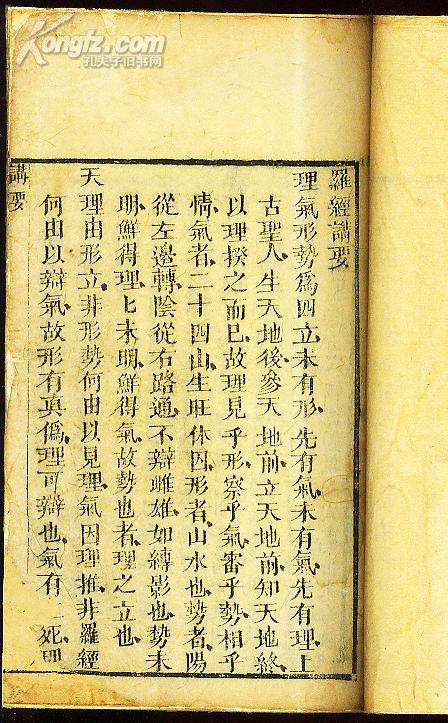 Kongfz.com
孔夫子旧书网
羅經講要
理氣形勢為四立未有形先有氣未有氣先有理上
古聖人生天地後參天地前立天地前知天地終
以理揆之而已故理見乎形察乎氣審乎勢相乎
情氣者二十四山生旺休囚形者山水也勢者陽
從左邊轉陰從右路通不辯雌雄如縛影也勢未
明鮮得理七未明鮮得氣故勢也者理之立也
天理由形立非形勢何由以見理氣因理推非羅經
何由以辯氣故形有真偽理可辯也氣有死
講要